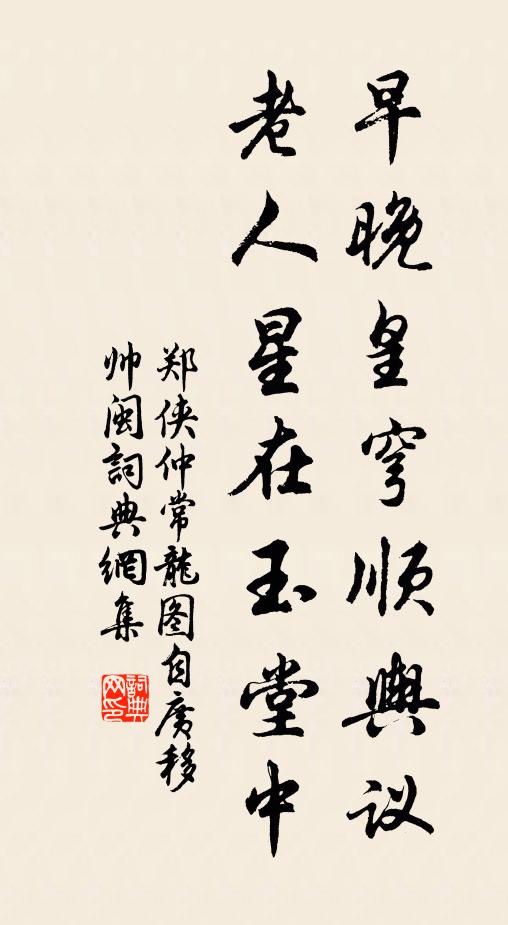 早晚皇穹顺舆议
老人星在玉堂中
郑侠仲常龍图自廣移
帅闽詞典網集
詞典网印